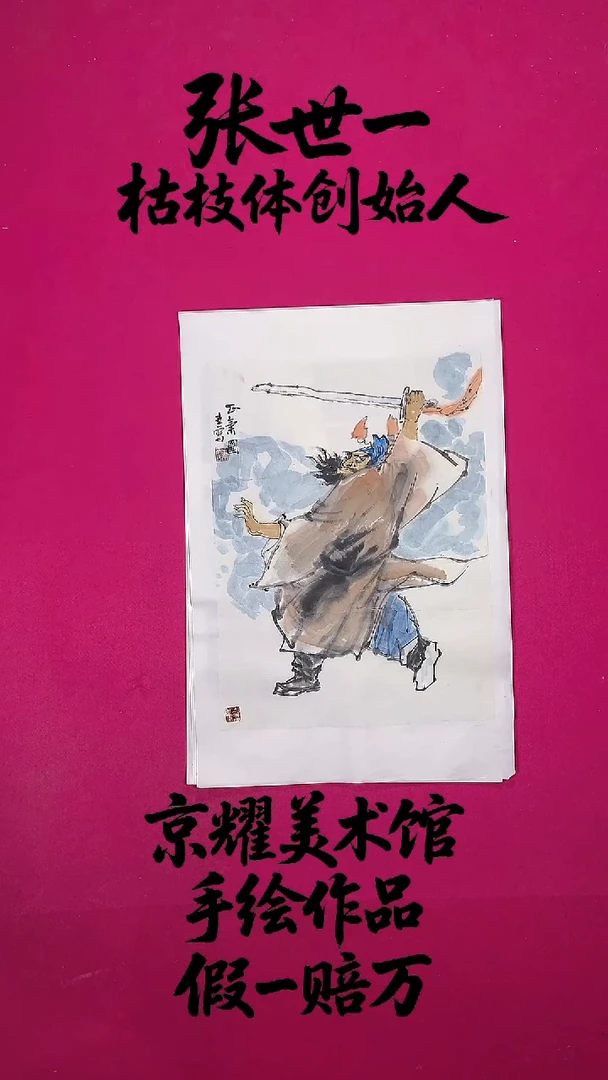 张世一
枯枝体创始人
正气
京耀美术馆
手绘作品
假一赔万